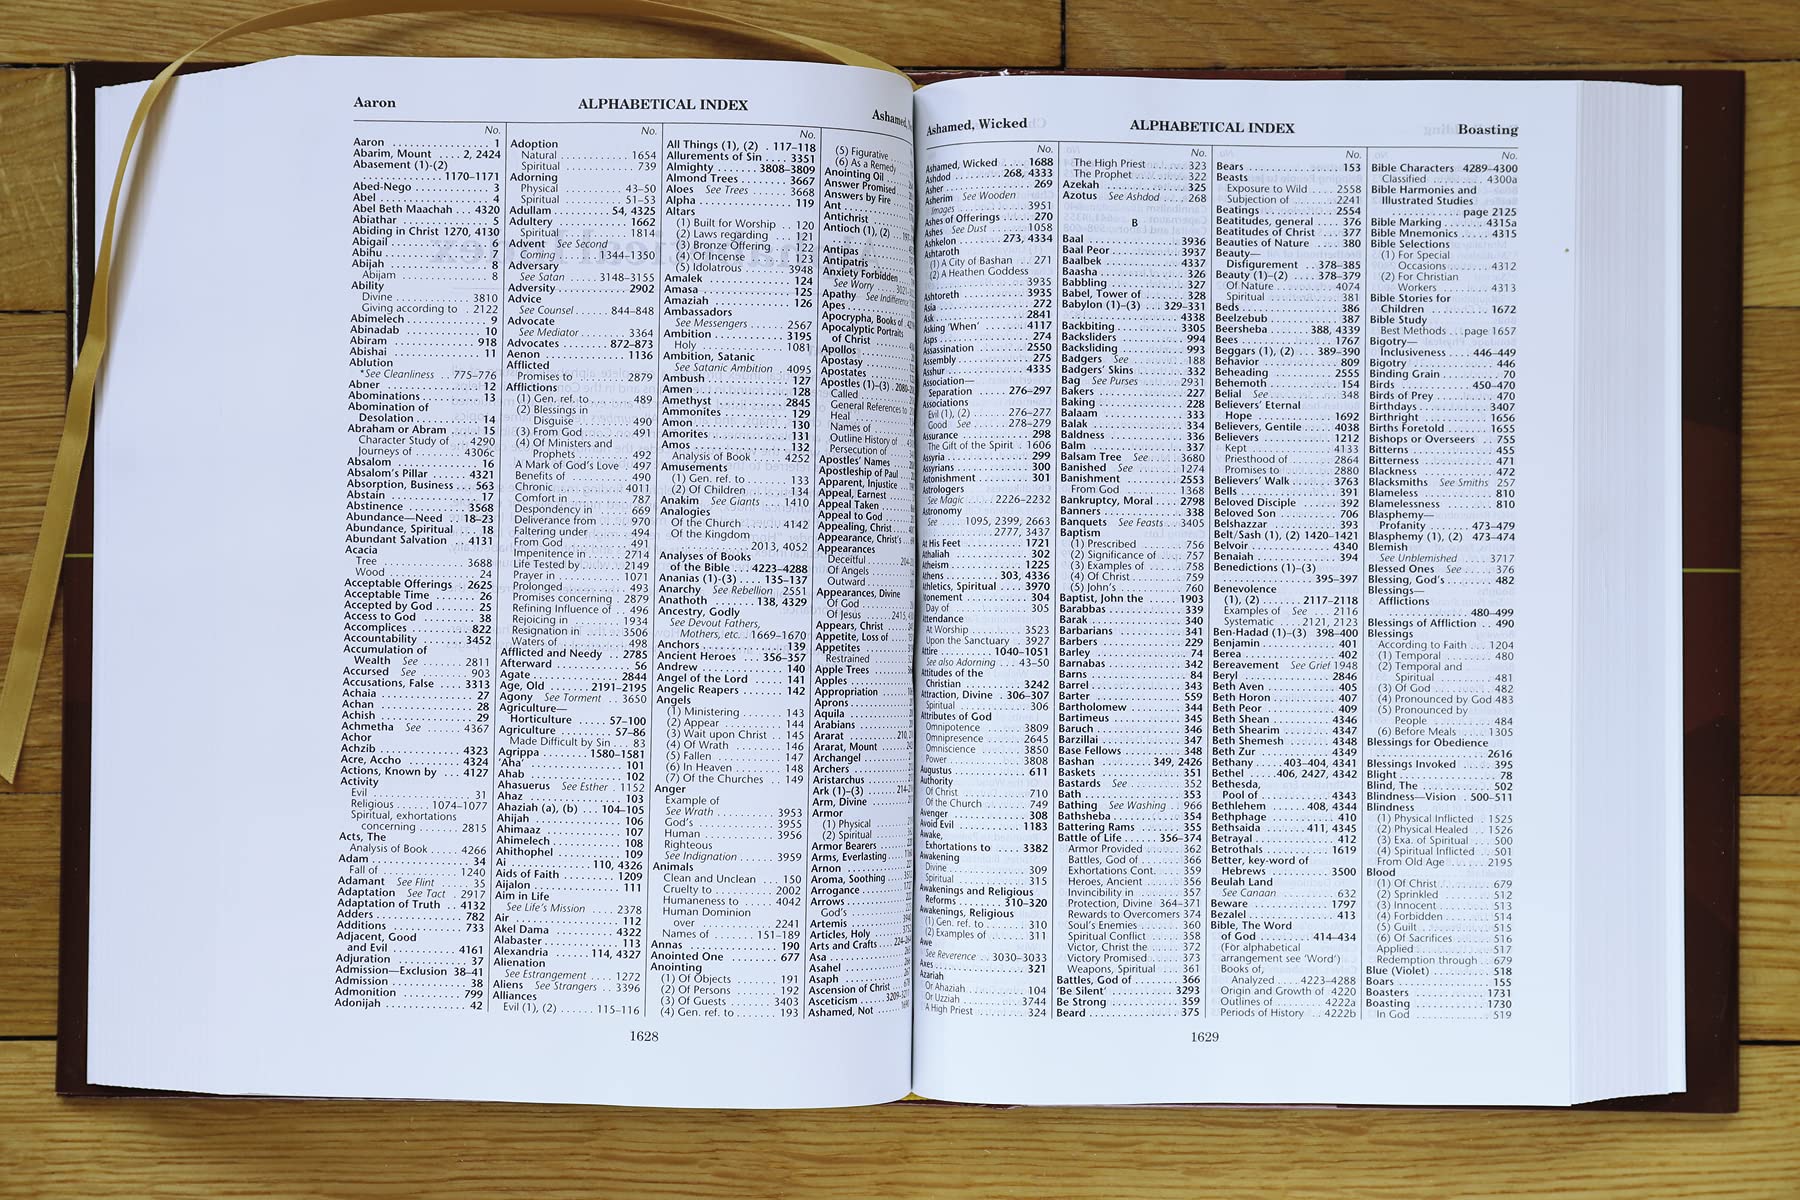 Aaron
ALPHABETICAL INDEX
No.
Aaron 1
Abarim, Mount 2, 2424
Abasement (1)-(2)
1170–1171
Abed-Nego 3
Abel 4
Abel Beth Maachah 4320
Abiathar 5
Abiding in Christ 1270, 4130
Abigail 6
Abihu 7
Abijah 8
Abijam 8
Ability
Divine 3810
Giving according to 2122
Abimelech 9
Abinadab 10
Abiram 918
Abishai 11
Ablution
*See Cleanliness 775–776
Abner 12
Abominations 13
Abomination of
Desolation 14
Abraham or Abram 15
Character Study of 4290
Journeys of 4306c
Absalom 16
Absalom's Pillar 4321
Absorption, Business 563
Abstain 17
Abstinence 3568
Abundance—Need 18–23
Abundance, Spiritual 18
Abundant Salvation 4131
Acacia
Tree 3688
Wood 24
Acceptable Offerings 2625
Acceptable Time 26
Accepted by God 25
Access to God 38
Accomplices 822
Accountability 3452
Accumulation of
Wealth See 2811
Accursed See 903
Accusations, False 3313
Achaia 27
Achan 28
Achish 29
Achmetha See 4367
Achor
Achzib 4323
Acre, Accho 4324
Actions, Known by 4127
Activity
Evil 31
Religious 1074–1077
Spiritual, exhortations
concerning 2815
Acts, The
Analysis of Book 4266
Adam 34
Fall of 1240
Adamant See Flint 35
Adaptation See Tact 2917
Adaptation of Truth 4132
Adders 782
Additions 733
Adjacent, Good
and Evil 4161
Adjuration 37
Admission—Exclusion 38–41
Admission 38
Admonition 799
Adonijah 42
No.
Adoption
Natural 1654
Spiritual 739
Adorning
Physical 43–50
Spiritual 51–53
Adullam 54, 4325
Adultery 1662
Spiritual 1814
Advent See Second
Coming 1344–1350
Adversary
See Satan 3148–3155
Adversity 2902
Advice
See Counsel 844–848
Advocate
See Mediator 3364
Advocates 872–873
Aenon 1136
Afflicted
Promises to 2879
Afflictions
(1) Gen. ref. to 489
(2) Blessings in
Disguise 490
(3) From God 491
(4) Of Ministers and
Prophets 492
A Mark of God's Love 497
Benefits of 490
Chronic 4011
Comfort in 787
Despondency in 669
Deliverance from 970
Faltering under 494
From God 491
Impenitence in 2714
Life Tested by 2149
Prayer in 1071
Prolonged 493
Promises concerning 2879
Refining Influence of 496
Rejoicing in 1934
Resignation in 3506
Waters of 498
Afflicted and Needy 2785
Afterward 56
Agate 2844
Age, Old 2191–2195
Agony See Torment 3650
Agriculture—
Horticulture 57–100
Agriculture 57–86
Made Difficult by Sin 83
Agrippa 1580–1581
'Aha' 101
Ahab 102
Ahasuerus See Esther 1152
Ahaz 103
Ahaziah (a), (b) 104–105
Ahijah 106
Ahimaaz 107
Ahimelech 108
Ahithophel 109
Ai 110, 4326
Aids of Faith 1209
Aijalon 111
Aim in Life
See Life's Mission 2378
Air 112
Akel Dama 4322
Alabaster 113
Alexandria 114, 4327
Alienation
See Estrangement 1272
Aliens See Strangers 3396
Alliances
Evil (1), (2) 115–116
No.
All Things (1), (2) 117–118
Allurements of Sin 3351
Almighty 3808–3809
Almond Trees 3667
Aloes See Trees 3668
Alpha 119
Altars
(1) Built for Worship 120
(2) Laws regarding 121
(3) Bronze Offering 122
(4) Of Incense 123
(5) Idolatrous 3948
Amalek 124
Amasa 125
Amaziah 126
Ambassadors
See Messengers 2567
Ambition 3195
Holy 1081
Ambition, Satanic
See Satanic Ambition 4095
Ambush 127
Amen 128
Amethyst 2845
Ammonites 129
Amon 130
Amorites 131
Amos 132
Analysis of Book 4252
Amusements
(1) Gen. ref. to 133
(2) Of Children 134
Anakim See Giants 1410
Analogies
Of the Church 4142
Of the Kingdom
2013, 4052
Analyses of Books
of the Bible 4223–4288
Ananias (1)-(3) 135–137
Anarchy See Rebellion 2551
Anathoth 138, 4329
Ancestry, Godly
See Devout Fathers,
Mothers, etc. 1669–1670
Anchors 139
Ancient Heroes 356–357
Andrew 140
Angel of the Lord 141
Angelic Reapers 142
Angels
(1) Ministering 143
(2) Appear 144
(3) Wait upon Christ 145
(4) Of Wrath 146
(5) Fallen 147
(6) In Heaven 148
(7) Of the Churches 149
Anger
Example of
See Wrath 3953
God's 3955
Human 3956
Righteous
See Indignation 3959
Animals
Clean and Unclean 150
Cruelty to 2002
Humaneness to 4042
Human Dominion
over 2241
Names of 151–189
Annas 190
Anointed One 677
Anointing
(1) Of Objects 191
(2) Of Persons 192
(3) Of Guests 3403
(4) Gen. ref. to 193
(5) Figurative
(6) As a Remedy
Anointing Oil
Answer Promised
Answers by Fire
Ant
Antichrist
Antioch (1), (2)
Antipas
Antipatris
Anxiety Forbidden
See Worry
Apathy See Indifference
Apes
Apocrypha, Books of
Apocalyptic Portraits
of Christ
Apollos
Apostasy
Apostates
Apostles (1)–(3)
Called
General References to
Heal
Names of
Outline History of
Persecution of
Apostles' Names
Apostleship of Paul
Apparent, Injustice
Appeal, Earnest
Appeal Taken
Appeal to God
Appealing, Christ
Appearance, Christ's
Appearances
Deceitful
Of Angels
Outward
Appearances, Divine
Of God
Of Jesus
Appears, Christ
Appetite, Loss of
Appetites
Restrained
Apple Trees
Apples
Appropriation
Aprons
Aquila
Arabians
Ararat
Ararat, Mount
Archangel
Archers
Aristarchus
Ark (1)–(3)
Arm, Divine
Armor
(1) Physical
(2) Spiritual
Armor Bearers
Arms, Everlasting
Arnon
Aroma, Soothing
Arrogance
Arrows
God's
Artemis
Articles, Holy
Arts and Crafts
Asa
Asahel
Asaph
Ascension of Christ
Asceticism
Ashamed, Not
1628
Ashamed, Wicked
ALPHABETICAL INDEX
Boasting
No.
Ashamed, Wicked 1688
Ashdod 268, 4333
Asher 269
Asherim See Wooden
Images 3951
Ashes of Offerings 270
Ashes See Dust 1058
Ashkelon 273, 4334
Ashtaroth
(1) A City of Bashan 271
(2) A Heathen Goddess
3935
Ashtoreth 3935
Asia 272
Ask 2841
Asking 'When' 4117
Asps 274
Assassination 2550
Assembly 275
Asshur 4335
Association—
Separation 276–297
Associations
Evil (1), (2) 276–277
Good See 278–279
Assurance 298
The Gift of the Spirit 1606
Assyria 299
Assyrians 300
Astonishment 301
Astrologers
See Magic 2226–2232
Astronomy
See 1095, 2399, 2663
2777, 3437
At His Feet 1721
Athaliah 302
Atheism 1225
Athens 303, 4336
Athletics, Spiritual 3970
Atonement 304
Day of 305
Attendance
At Worship 3523
Upon the Sanctuary 3927
Attire 1040–1051
See also Adorning 43–50
Attitudes of the
Christian 3242
Attraction, Divine 306–307
Spiritual 306
Attributes of God
Omnipotence 3809
Omnipresence 2645
Omniscience 3850
Power 3808
Augustus 611
Authority
Of Christ 710
Of the Church 749
Avenger 308
Avoid Evil 1183
Awake,
Exhortations to 3382
Awakening
Divine 309
Spiritual 315
Awakenings and Religious
Reforms 310–320
Awakenings, Religious
(1) Gen. ref. to 310
(2) Examples of 311
Awe
See Reverence 3030–3033
Axes 321
Azariah
Or Ahaziah 104
Or Uzziah 3744
A High Priest 324
No.
The High Priest 323
The Prophet 322
Azekah 325
Azotus See Ashdod 268
B
Baal 3936
Baal Peor 3937
Baalbek 4337
Baasha 326
Babbling 327
Babel, Tower of 328
Babylon (1)–(3) 329–331
4338
Backbiting 3305
Backsliders 994
Backsliding 993
Badgers See 188
Badgers' Skins 332
Bag See Purses 2931
Bakers 227
Baking 228
Balaam 333
Balak 334
Baldness 336
Balm 337
Balsam Tree See 3680
Banished See 1274
Banishment 2553
From God 1368
Bankruptcy, Moral 2798
Banners 338
Banquets See Feasts 3405
Baptism
(1) Prescribed 756
(2) Significance of 757
(3) Examples of 758
(4) Of Christ 759
(5) John's 760
Baptist, John the 1903
Barabbas 339
Barak 340
Barbarians 341
Barbers 229
Barley 74
Barnabas 342
Barns 84
Barrel 343
Barter 559
Bartholomew 344
Bartimeus 345
Baruch 346
Barzillai 347
Base Fellows 348
Bashan 349, 2426
Baskets 351
Bastards See 352
Bath 353
Bathing See Washing 966
Bathsheba 354
Battering Rams 355
Battle of Life 356–374
Armor Provided 362
Battles, God of 366
Exhortations Cont. 359
Heroes, Ancient 356
Invincibility in 357
Protection, Divine 364–371
Rewards to Overcomers 374
Soul's Enemies 360
Spiritual Conflict 358
Victor, Christ the 372
Victory Promised 373
Weapons, Spiritual 361
Battles, God of 366
'Be Silent' 3293
Be Strong 359
Beard 375
No.
Bears 153
Beasts
Exposure to Wild 2558
Subjection of 2241
Beatings 2554
Beatitudes, general 376
Beatitudes of Christ 377
Beauties of Nature 380
Beauty—
Disfigurement 378–385
Beauty (1)–(2) 378–379
Of Nature 4074
Spiritual 381
Beds 386
Beelzebub 387
Beersheba 388, 4339
Bees 1767
Beggars (1), (2) 389–390
Behavior 809
Beheading 2555
Behemoth 154
Belial See 348
Believers' Eternal
Hope 1692
Believers, Gentile 4038
Believers 1212
Kept 4133
Priesthood of 2864
Promises to 2880
Believers' Walk 3763
Bells 391
Beloved Disciple 392
Beloved Son 706
Belshazzar 393
Belt/Sash (1), (2) 1420–1421
Belvoir 4340
Benaiah 394
Benedictions (1)–(3)
395–397
Benevolence
(1), (2) 2117–2118
Examples of See 2116
Systematic 2121, 2123
Ben-Hadad (1)–(3) 398–400
Benjamin 401
Berea 402
Bereavement See Grief 1948
Beryl 2846
Beth Aven 405
Beth Horon 407
Beth Peor 409
Beth Shean 4346
Beth Shearim 4347
Beth Shemesh 4348
Beth Zur 4349
Bethany 403–404, 4341
Bethel 406, 2427, 4342
Bethesda,
Pool of 4343
Bethlehem 408, 4344
Bethphage 410
Bethsaida 411, 4345
Betrayal 412
Betrothals 1619
Better, key-word of
Hebrews 3500
Beulah Land
See Canaan 632
Beware 1797
Bezalel 413
Bible, The Word
of God 414–434
(For alphabetical
arrangement see 'Word')
Books of,
Analyzed 4223–4288
Origin and Growth of 4220
Outlines of 4222a
Periods of History 4222b
No.
Bible Characters 4289–4300
Classified 4300a
Bible Harmonies and
Illustrated Studies
page 2125
Bible Marking 4315a
Bible Mnemonics 4315
Bible Selections
(1) For Special
Occasions 4312
(2) For Christian
Workers 4313
Bible Stories for
Children 1672
Bible Study
Best Methods page 1657
Bigotry—
Inclusiveness 446–449
Bigotry 446
Binding Grain 70
Birds 450–470
Birds of Prey 470
Birthdays 3407
Birthright 1656
Births Foretold 1655
Bishops or Overseers 755
Bitterns 455
Bitterness 471
Blackness 472
Blacksmiths See Smiths 257
Blameless 810
Blamelessness 810
Blasphemy—
Profanity 473–479
Blasphemy (1), (2) 473–474
Blemish
See Unblemished 3717
Blessed Ones See 376
Blessing, God's 482
Blessings—
Afflictions
480–499
Blessings of Affliction 490
Blessings
According to Faith 1204
(1) Temporal 480
(2) Temporal and
Spiritual 481
(3) Of God 482
(4) Pronounced by God 483
(5) Pronounced by
People 484
(6) Before Meals 1305
Blessings for Obedience
2616
Blessings Invoked 395
Blight 78
Blind, The 502
Blindness—Vision 500–511
Blindness
(1) Physical Inflicted 1525
(2) Physical Healed 1526
(3) Exa. of Spiritual 500
(4) Spiritual Inflicted 501
From Old Age 2195
Blood
(1) Of Christ 679
(2) Sprinkled 512
(3) Innocent 513
(4) Forbidden 514
(5) Guilt 515
(6) Of Sacrifices 516
Applied 517
Redemption through 679
Blue (Violet) 518
Boars 155
Boasters 1731
Boasting 1730
In God 519
1629